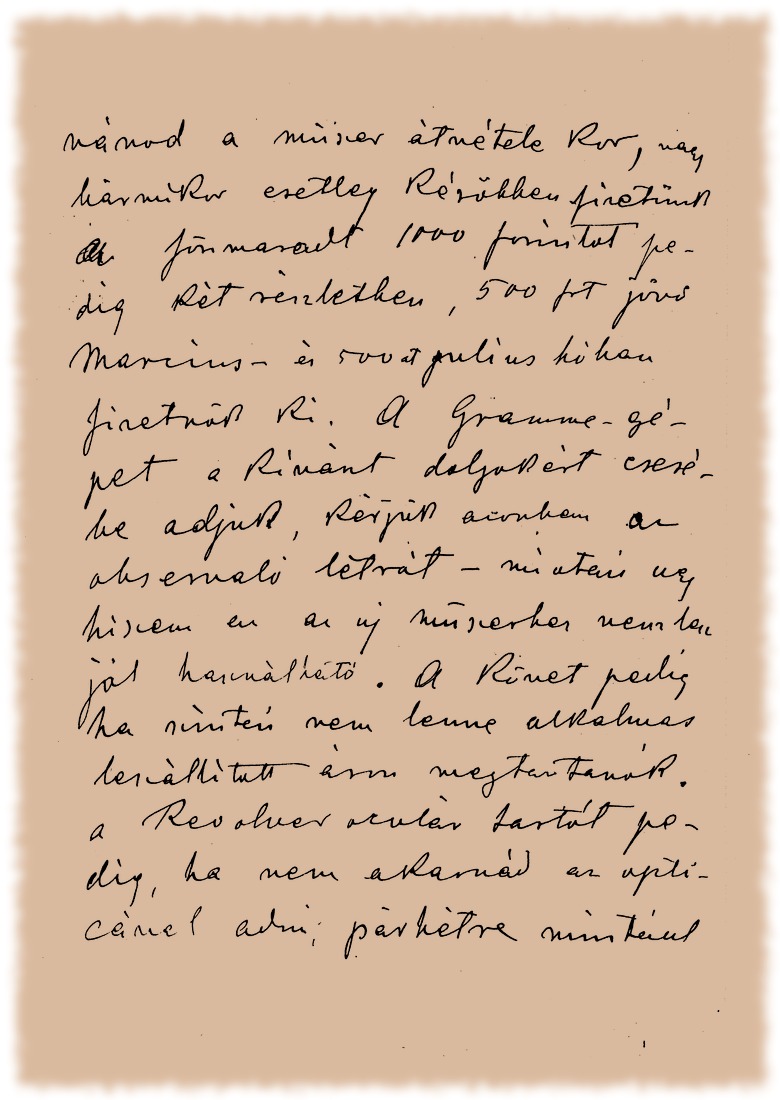 nánod a műszer átvétele kor, vagy
bármikor esetleg később fizetünk
a fönmaradt 1000 forintot pe-
dig két részletben, 500 frt jövő
Marcius- és 500at julius hóban
fizetnők ki. A Gramme-gé-
pet a kivánt dolgokért cseré-
be adjuk, kérjük azonban az
observaló létrát - miután ugy
hiszem ez az új műszerhez nem lesz
jól használható. A Követ pedig
ha szintén nem lenne alkalmas
leszállitott áron megtartanók.
a Revolver oculár tartót pe-
dig, ha nem akarnád az opti-
cánál adni, párhétre mintául